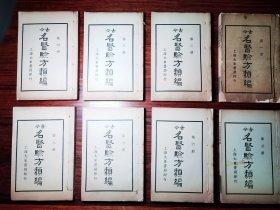 古今
名醫驗方類編
上海大東書局印行
古今
名醫驗方類編
上海大東書局印行
古今
名醫驗方類編
上海大東書局印行
古今
名醫驗方類編
上海大東書局印行
古今
名醫驗方類編
上海大東書局印行
古今
名醫驗方類編
上海大東書局印行
古今
名醫驗方類編
上海大東書局印行
古今
名醫驗方類編
上海大東書局印行